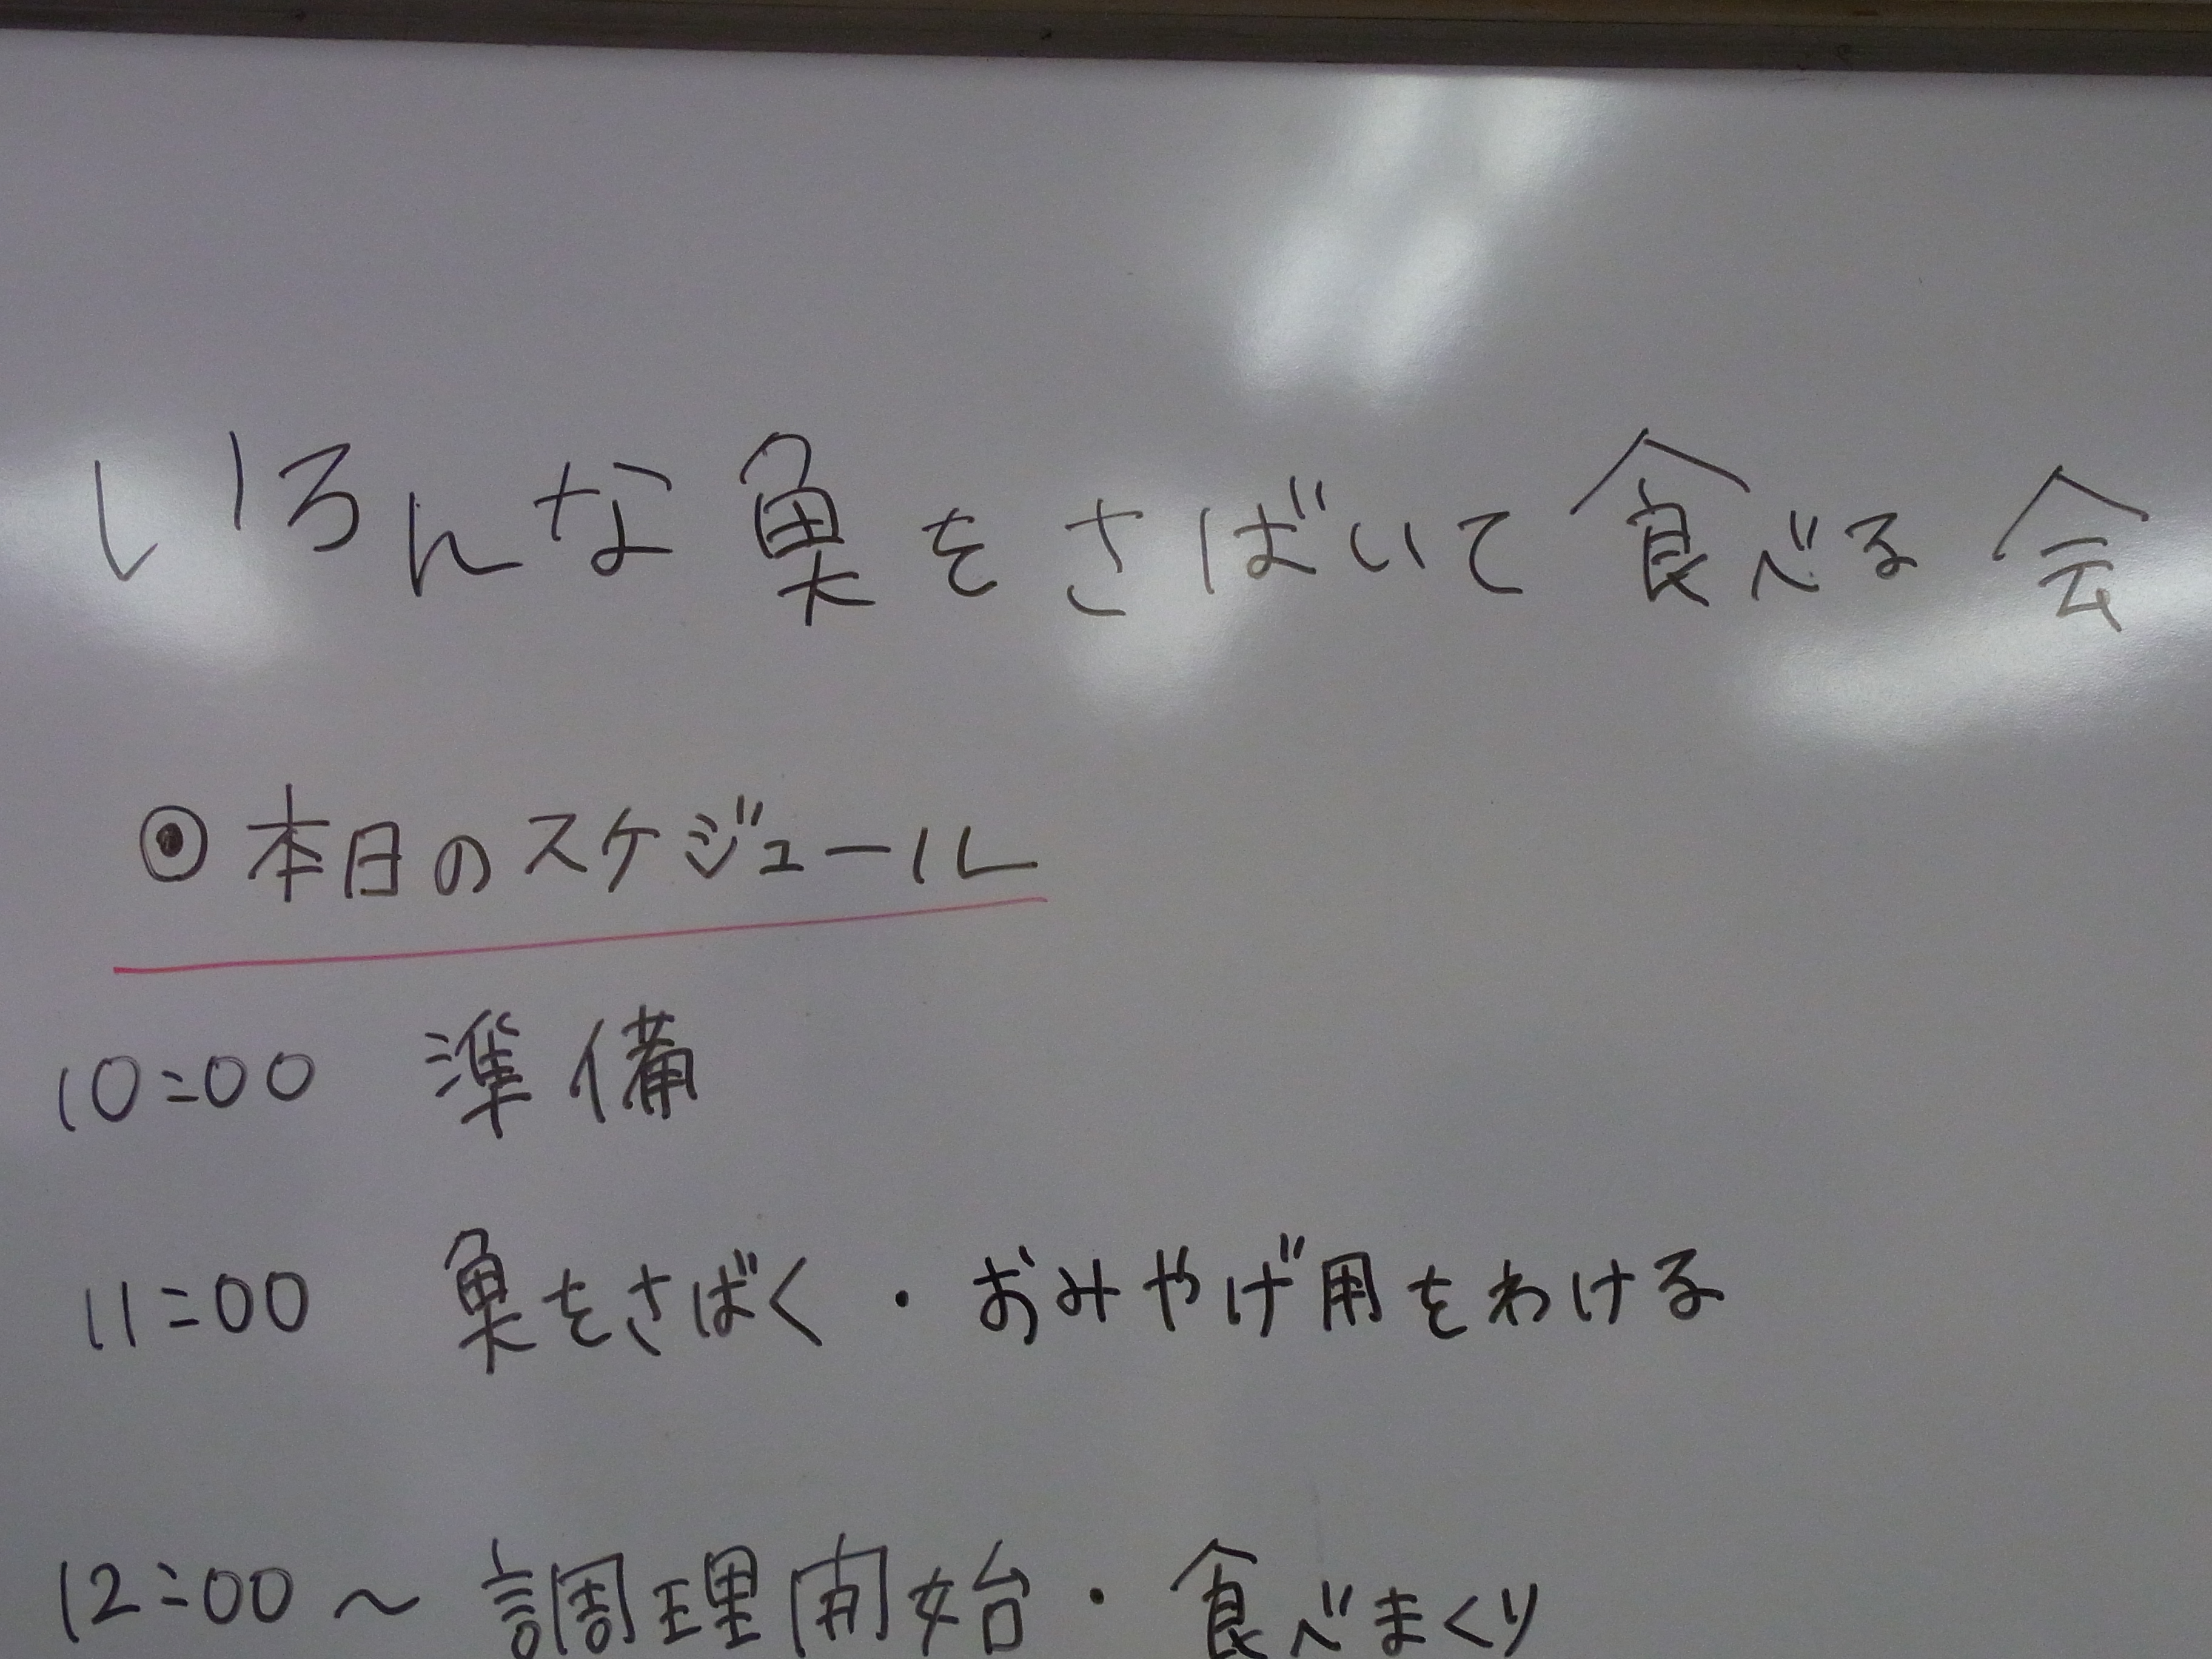 いろんな魚をさばいて食べる会
◉本日のスケジュール
10:00 準備
11:00 魚をさばく・おみやげ用をわける
12:00～調理開始・食べまくり